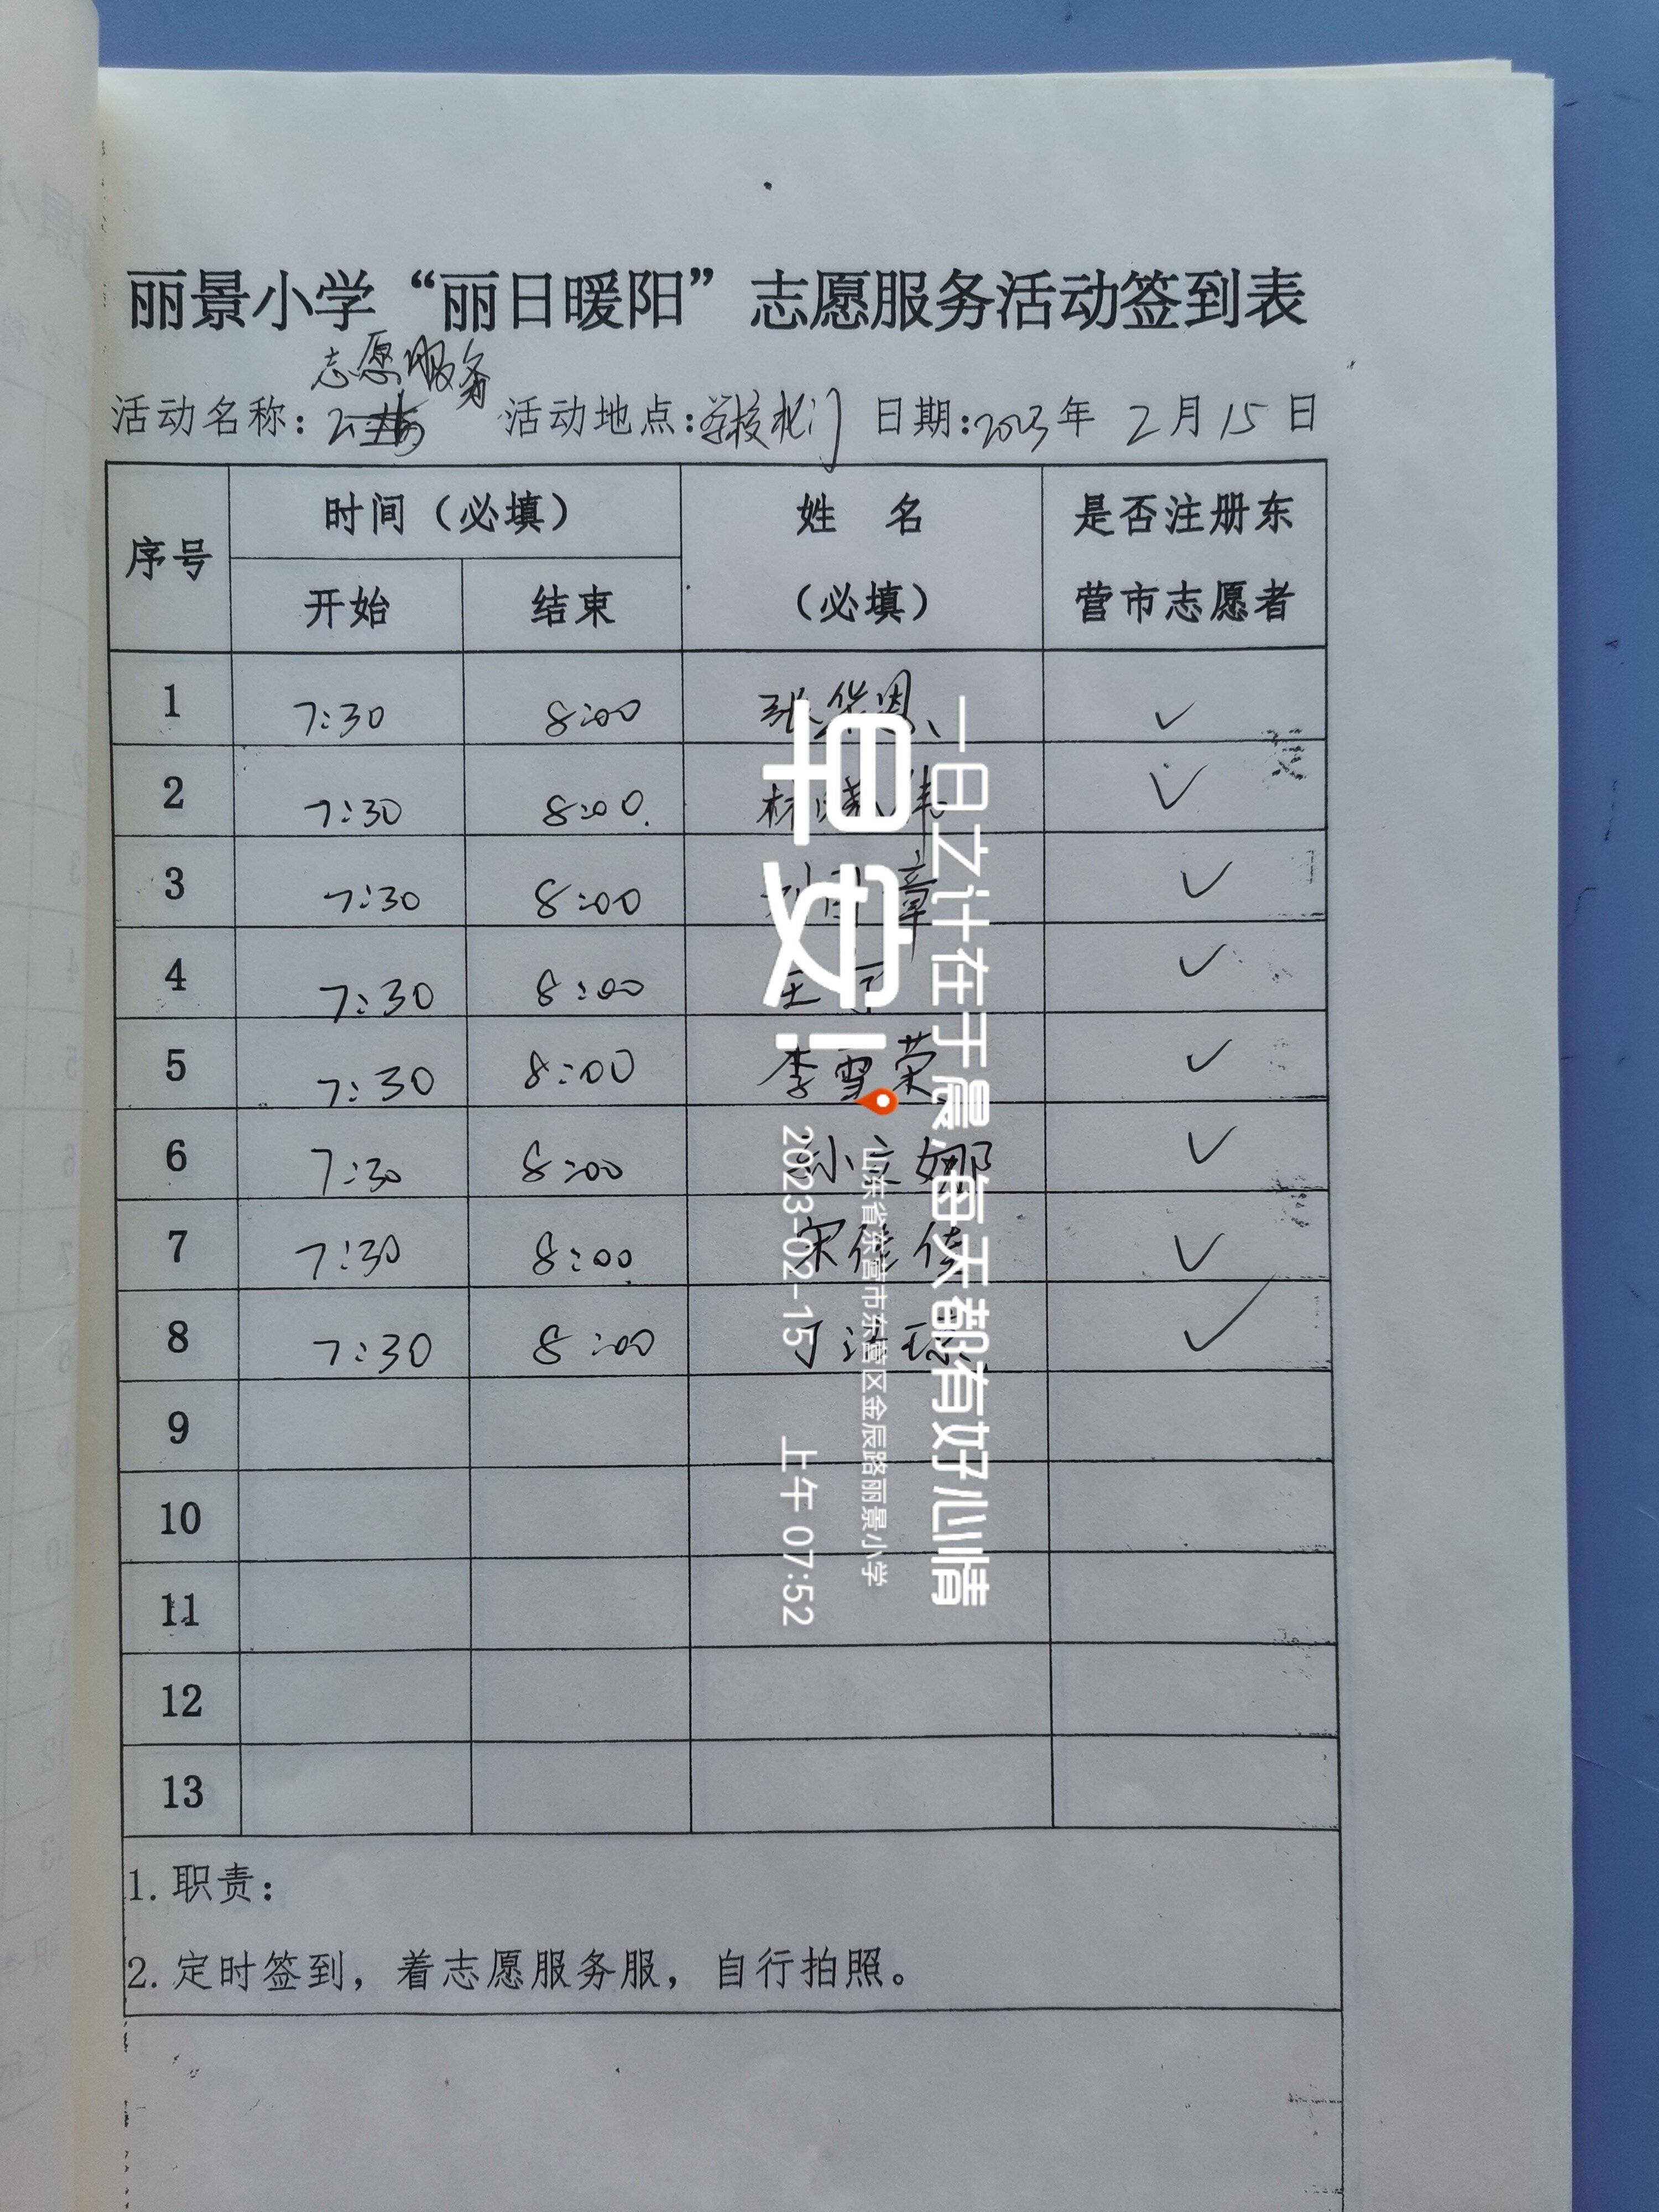 丽景小学“丽日暖阳”志愿服务活动签到表
志愿服务
活动名称: 活动地点:学校北门 日期:2023年 2月15日
序号 时间（必填） 姓 名（必填） 是否注册东营市志愿者
开始 结束
1 7:30 8:00 张华恩 ✓
2 7:30 8:00 林 ✓
3 7:30 8:00 章 ✓
4 7:30 8:00 王 ✓
5 7:30 8:00 李雪荣 ✓
6 7:30 8:00 孙立娜 ✓
7 7:30 8:00 宋佳佳 ✓
8 7:30 8:00 丁 ✓
9
10
11
12
13
1.职责:
2.定时签到，着志愿服务服，自行拍照。
早安!
一日之计在于晨每天都有好心情
山东省东营市东营区金辰路丽景小学
2023-02-15 上午 07:52